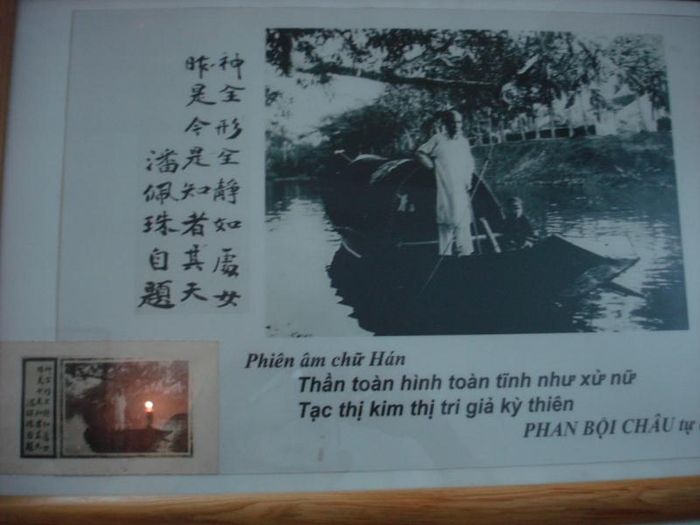 神全形全靜如處女
昨是今是知者其天
潘佩珠自題
Phiên âm chữ Hán
Thần toàn hình toàn tĩnh như xử nữ
Tạc thị kim thị tri giả kỳ thiên
PHAN BỘI CHÂU tự